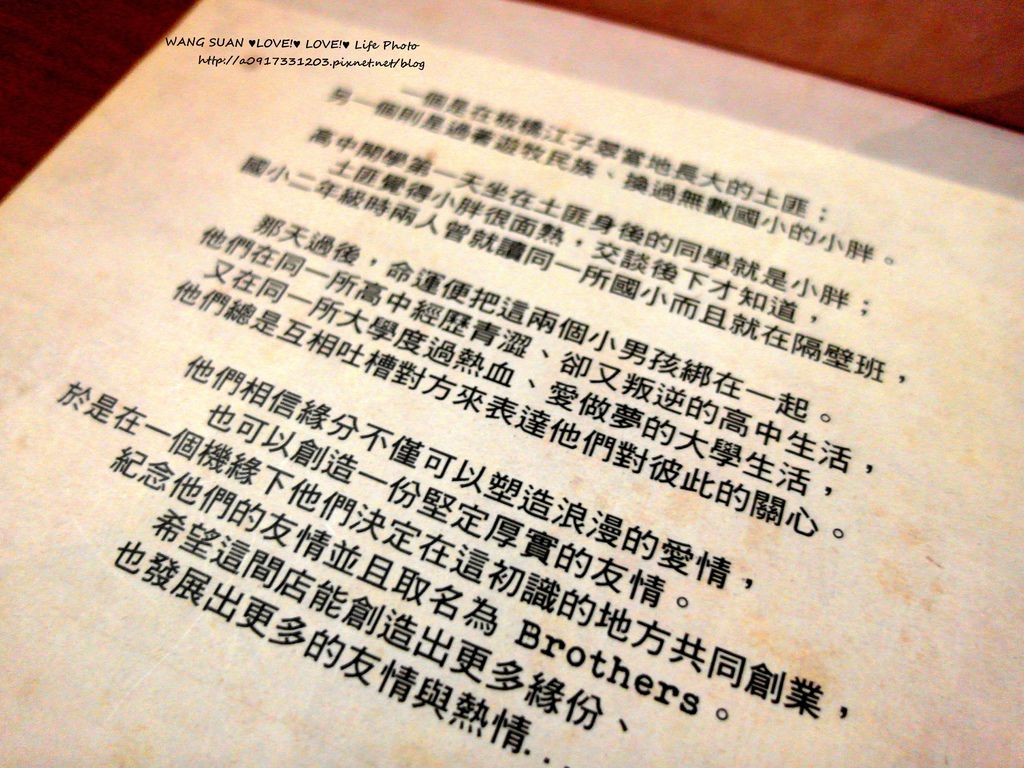 WANG SUAN ♥LOVE!♥ LOVE!♥ Life Photo
http://a0917331203.pixnet.net/blog
一個是在板橋江子翠當地長大的土匪；
另一個則是過著遊牧民族、換過無數國小的小胖。
高中開學第一天坐在土匪身後的同學就是小胖；
土匪覺得小胖很面熟，交談後下才知道，
國小二年級時兩人曾就讀同一所國小而且就在隔壁班，
那天過後，命運便把這兩個小男孩綁在一起。
他們在同一所高中經歷青澀、卻又叛逆的高中生活，
又在同一所大學度過熱血、愛做夢的大學生活，
他們總是互相吐槽對方來表達他們對彼此的關心。
他們相信緣分不僅可以塑造浪漫的愛情，
也可以創造一份堅定厚實的友情。
於是在一個機緣下他們決定在這初識的地方共同創業，
紀念他們的友情並且取名為 Brothers。
希望這間店能創造出更多緣份、
也發展出更多的友情與熱情...